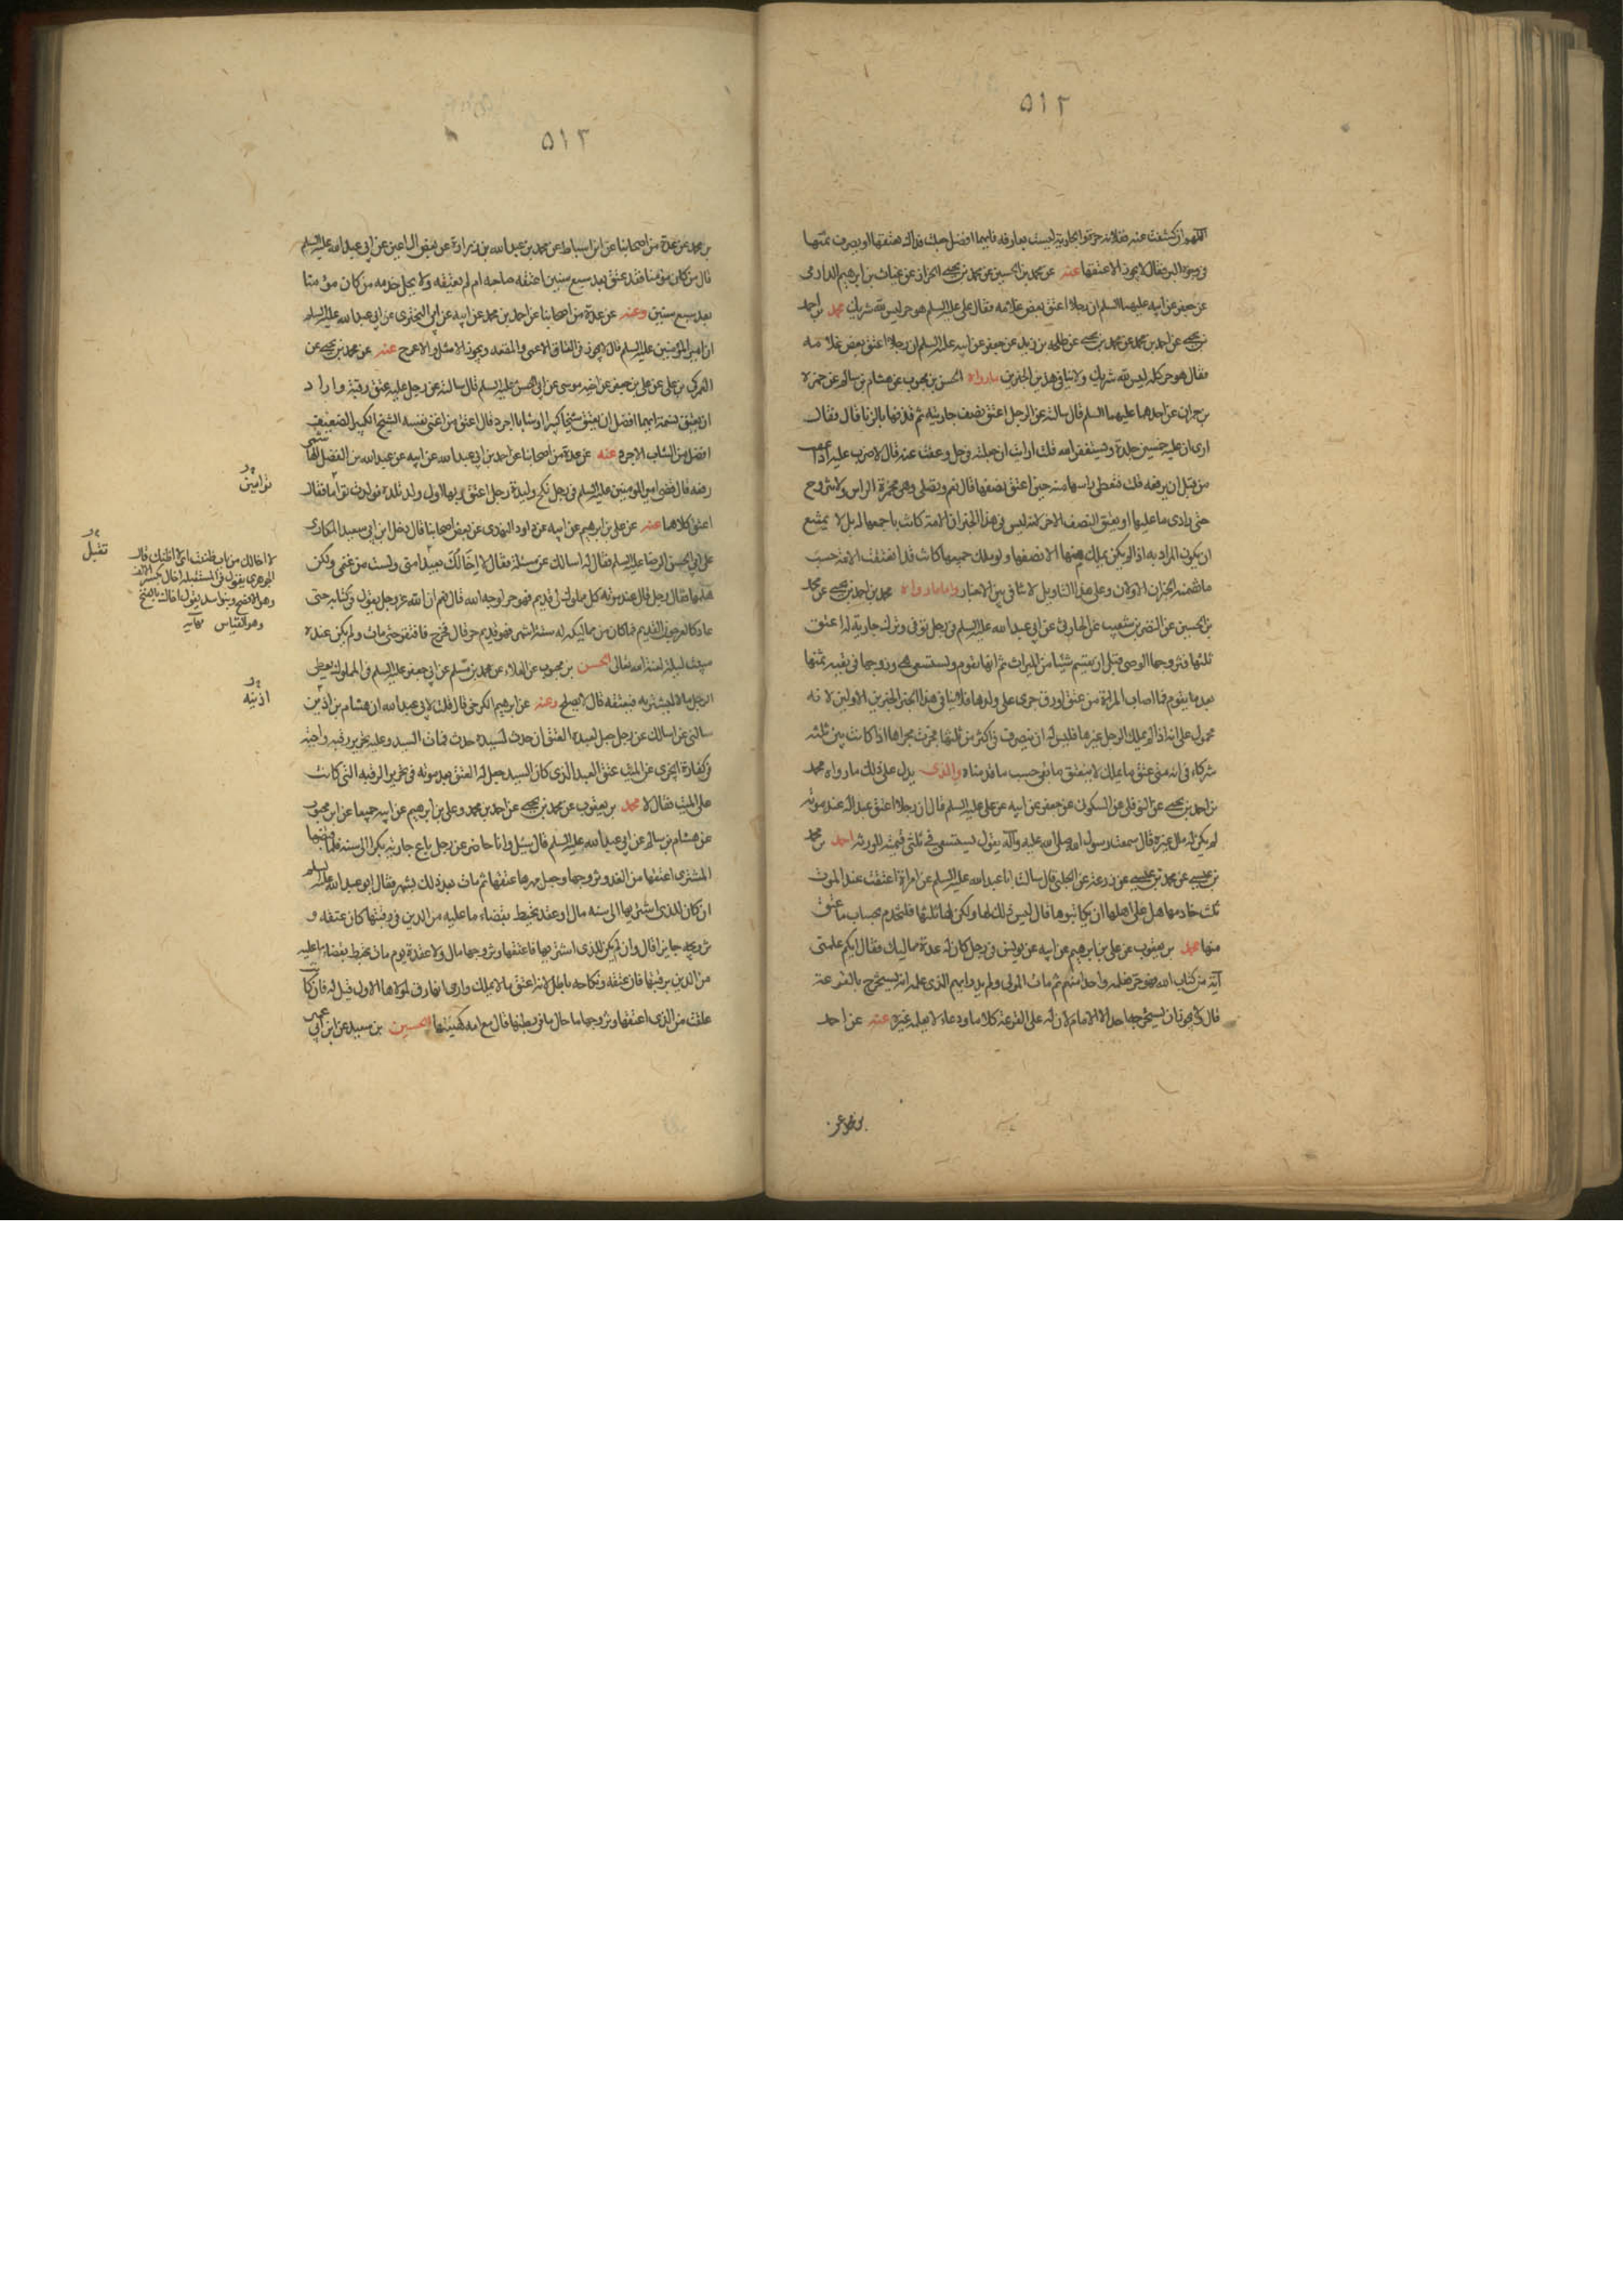 ٥١٢
اللهم ان كشفت عنه ففلانة حرة والجارية ليست بعارفه فايهما افضل جعلت فداك هتقها او يصرف ثمنها
في وجوه البر فقال لا يجوز الا عتقها عنه عن محمد بن الحسين عن محمد بن يحيى الخزاز عن غياث بن ابرهيم الدارمى
عن جعفر عن ابيه عليهما السلم ان رجلا اعتق بعض غلامه فقال على عليه السلم هو حر ليس لله شريك محمد بن احمد
بن يحيى عن احمد بن محمد عن محمد بن يحيى عن طلحه بن زيد عن جعفر عن ابيه عليه السلم ان رجلا اعتق بعض غلامه
فقال هو حر كله ليس لله شريك ولا ينافي هذين الخبرين ما رواه الحسن بن محبوب عن هشام بن سالم عن حمزه
بن حمران عن احدهما عليهما السلم قال سالته عن الرجل اعتق نصف جاريته ثم قذفها بالزنا قال فقال
ارى ان عليه خمسين جلدة ويستغفر الله قلت ارايت ان جعلته في حل وعفت عنه قال لا ضرب عليه اذا عفت
من قبل ان يرفعه قلت فتغطي راسها منه حين اعتق نصفها قال نعم وتصلى وهي مخمرة الراس ولا تتزوج
حتى يؤدى ما عليها او يعتق النصف الاخر لانه ليس في هذا الخبر ان الامة كانت باجمعها له بل لا يمتنع
ان يكون المراد به اذا لم يكن يملك منها الا نصفها ولو ملك جميعها كانت قد انعتقت الامة حسب
ما تضمنه الخبران الاولان وعلى هذا التاويل لا تنافى بين الاخبار واما ما رواه محمد بن احمد بن يحيى عن محمد
بن الحسين عن النضر بن شعيب عن الحارثى عن ابى عبد الله عليه السلم في رجل توفى وترك جارية له اعتق
ثلثها فتزوجها الوصى قبل ان يقسم شيئا من الميراث ثم انها تقوم وتستسعى هي وزوجها فى بقيه ثمنها
بعد ما يقوم فما اصاب المراة من عتق او رق جرى على ولدها فلا ينافى هذا الخبر الخبرين الاولين لانه
محمول على انه اذا لم يملك الرجل غيرها فليس له ان يتصرف فى اكثر من ثلثها فجرت مجراها اذا كانت بين ثلثه
شركاء فى انه متى عتق ما يملك لا ينعتق ما بقى حسب ما قدمناه والذى يدل على ذلك ما رواه محمد
بن احمد بن يحيى عن النوفلى عن السكونى عن جعفر عن ابيه عن على عليه السلم قال ان رجلا اعتق عبدا له عند موته
لم يكن له مال غيره قال سمعت رسول الله صلى الله عليه وآله يقول يستسعى فى ثلثى قيمته للورثه احمد بن محمد
بن عيسى عن محمد بن عيسى عن زرعة عن الحلبى قال سالت ابا عبد الله عليه السلم عن امراة اعتقت عند الموت
ثلث خادمها هل على اهلها ان يكاتبوها قال ليس ذلك لها ولكن لها ثلثها فلتخدم بحساب ما عتق
منها محمد بن يعقوب عن على بن ابرهيم عن ابيه عن يونس فى رجل كان له عدة مماليك فقال ايكم علمنى
آية من كتاب الله فهو حر فعلمه واحد منهم ثم مات المولى ولم يدر ايهم الذى علمه انه يستخرج بالقرعة
قال لا يجوز ان يستخرجها احد الا الامام لان له على القرعة كلاما ودعاء لا يعلمه غيره عنه عن احمد
بن محمد عن
٥١٢
بن محمد عن عدة من اصحابنا عن ابن اسباط عن محمد بن عبد الله بن زرارة عن بعض آل اعين عن ابى عبد الله عليه السلم
قال من كان مؤمنا فقد عتق بعد سبع سنين اعتقه صاحبه ام لم يعتقه ولا يحل خدمه من كان مؤمنا
بعد سبع سنين وعنه عن عدة من اصحابنا عن احمد بن محمد عن ابيه عن ابى البخترى عن ابى عبد الله عليه السلم
ان امير المؤمنين عليه السلم قال لا يجوز فى العتاق الاعمى والمقعد ويجوز الاشل والاعرج عنه عن محمد بن يحيى عن
العمركى بن على عن على بن جعفر عن اخيه موسى عن ابى الحسن عليه السلم قال سالته عن رجل عليه عتق رقبة واراد
ان يعتق نسمة ايهما افضل ان يعتق شيخا كبيرا او شابا اجرد قال اعتق من اغنى نفسه الشيخ الكبير الضعيف
افضل من الشاب الاجرد عنه عن عدة من اصحابنا عن احمد بن ابى عبد الله عن ابيه عن عبد الله بن الفضل الهاشمى
رفعه قال قضى امير المومنين عليه السلم فى رجل نكح وليدة رجل اعتق ربها اول ولد تلده فولدت توأما فقال
اعتق كلاهما عنه عن على بن ابرهيم عن ابيه عن داود النهدى عن بعض اصحابنا قال دخل ابن ابى سعيد المكارى
على ابى الحسن الرضا عليه السلم فقال له اسالك عن مسئلة فقال لا اخالك تقبل منى ولست من غنمى ولكن
هلمها فقال رجل قال عند موته كل مملوك لى قديم فهو حر لوجه الله قال نعم ان الله عز وجل يقول فى كتابه حتى
عاد كالعرجون القديم فما كان من مماليكه له ستة اشهر فهو قديم حر قال فخرج فافتقر حتى مات ولم يكن عنده
مبيت ليلة لعنه الله تعالى الحسن بن محبوب عن العلاء عن محمد بن مسلم عن ابى جعفر عليه السلم فى المملوك يعطى
الرجل مالا ليشتريه فيعتقه قال لا يصلح وعنه عن ابرهيم الكرخى قال قلت لابى عبد الله ان هشام بن اذينة
سالنى عن اسالك عن رجل جعل لعبده العتق ان حدث لسيده حدث فمات السيد وعليه تحرير رقبه واجبه
فى كفارة ايجزى عن الميت عتق العبد الذى كان السيد جعل له العتق بعد موته فى تحرير الرقبه التى كانت
على الميت فقال لا محمد بن يعقوب عن محمد بن يحيى عن احمد بن محمد وعلى بن ابرهيم عن ابيه جميعا عن ابن محبوب
عن هشام بن سالم عن ابى عبد الله عليه السلم قال سئل وانا حاضر عن رجل باع جاريته بكرا الى سنة فلما قبضها
المشترى اعتقها من الغد وتزوجها وجعل مهرها عتقها ثم مات بعد ذلك بشهر فقال ابو عبد الله عليه السلم
ان كان للذى اشتريها الى سنه مال او عقد يحيط بقضاء ما عليه من الدين فى رقبتها كان عتقه و
تزويجه جايزا قال وان لم يكن للذى اشتريها فاعتقها وتزوجها مال ولا عقدة يوم مات يحيط بقضاء ما عليه
من الدين برقبتها فان عتقه ونكاحه باطل لانه اعتق ما لا يملك وارى انها رق لمولاها الاول قيل له فان كانت
علقت من الذى اعتقها وتزوجها ما حال ما فى بطنها قال مع امه كهيئتها الحسين بن سعيد عن ابن ابى عمير
توأمين
تقبل
لا اخالك من باب ظننت اى لا اظنك قال
الجوهرى يقول فى المستقبل اخال بكسر الالف
وهو الافصح وبنو اسد يقول اخال بالفتح
وهو القياس
اذينه